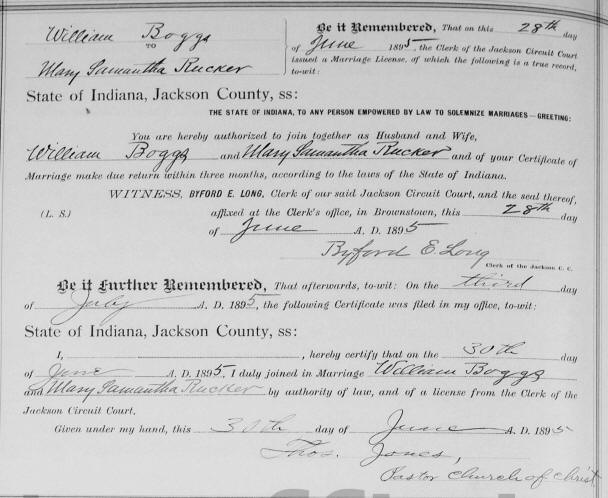 William Boggs
TO
Mary Samantha Rucker
Be it Remembered, That on this 28th day
of June 1895, the Clerk of the Jackson Circuit Court
issued a Marriage License, of which the following is a true record,
to-wit:
State of Indiana, Jackson County, ss:
THE STATE OF INDIANA, TO ANY PERSON EMPOWERED BY LAW TO SOLEMNIZE MARRIAGES—GREETING:
You are hereby authorized to join together as Husband and Wife,
William Boggs and Mary Samantha Rucker and of your Certificate of
Marriage make due return within three months, according to the laws of the State of Indiana.
WITNESS, BYFORD E. LONG, Clerk of our said Jackson Circuit Court, and the seal thereof,
(L. S.) affixed at the Clerk's office, in Brownstown, this 28th day
of June A. D. 1895
Byford E. Long
Clerk of the Jackson C. C.
Be it Further Remembered, That afterwards, to-wit: On the third day
of July A. D. 1895, the following Certificate was filed in my office, to-wit:
State of Indiana, Jackson County, ss:
I, , hereby certify that on the 30th day
of June A. D. 1895, I duly joined in Marriage William Boggs
and Mary Samantha Rucker by authority of law, and of a license from the Clerk of the
Jackson Circuit Court.
Given under my hand, this 30th day of June A. D. 1895
Thos. Jones,
Pastor Church of Christ